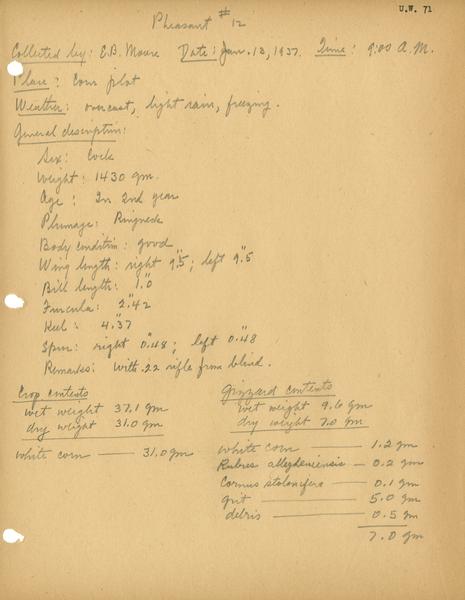 U.W. 71
Pheasant #12
Collected by: E.B. Moore Date: Jan. 13, 1937. Time: 9:00 A.M.
Place: Corn plot
Weather: overcast, light rain, freezing.
General description:
Sex: Cock
Weight: 1430 gm.
Age: In 2nd year
Plumage: Ringneck
Body condition: good
Wing length: right 9."5; left 9."5
Bill length: 1."0
Furcula: 2."42
Keel: 4."37
Spur: right 0."48; left 0."48
Remarks: With .22 rifle from blind.
Crop contents
wet weight 37.1 gm
dry weight 31.0 gm
white corn — 31.0 gm
Gizzard contents
wet weight 9.6 gm
dry weight 7.0 gm
white corn — 1.2 gm
Rubus allegheniensis — 0.2 gm
Cornus stolonifera — 0.1 gm
grit — 5.0 gm
debris — 0.5 gm
7.0 gm